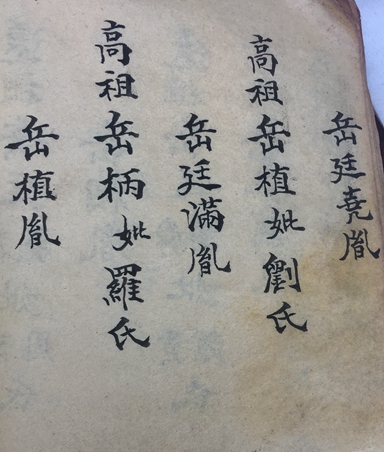 岳廷堯胤
高祖岳植妣劉氏
岳廷滿胤
高祖岳柄妣羅氏
岳植胤